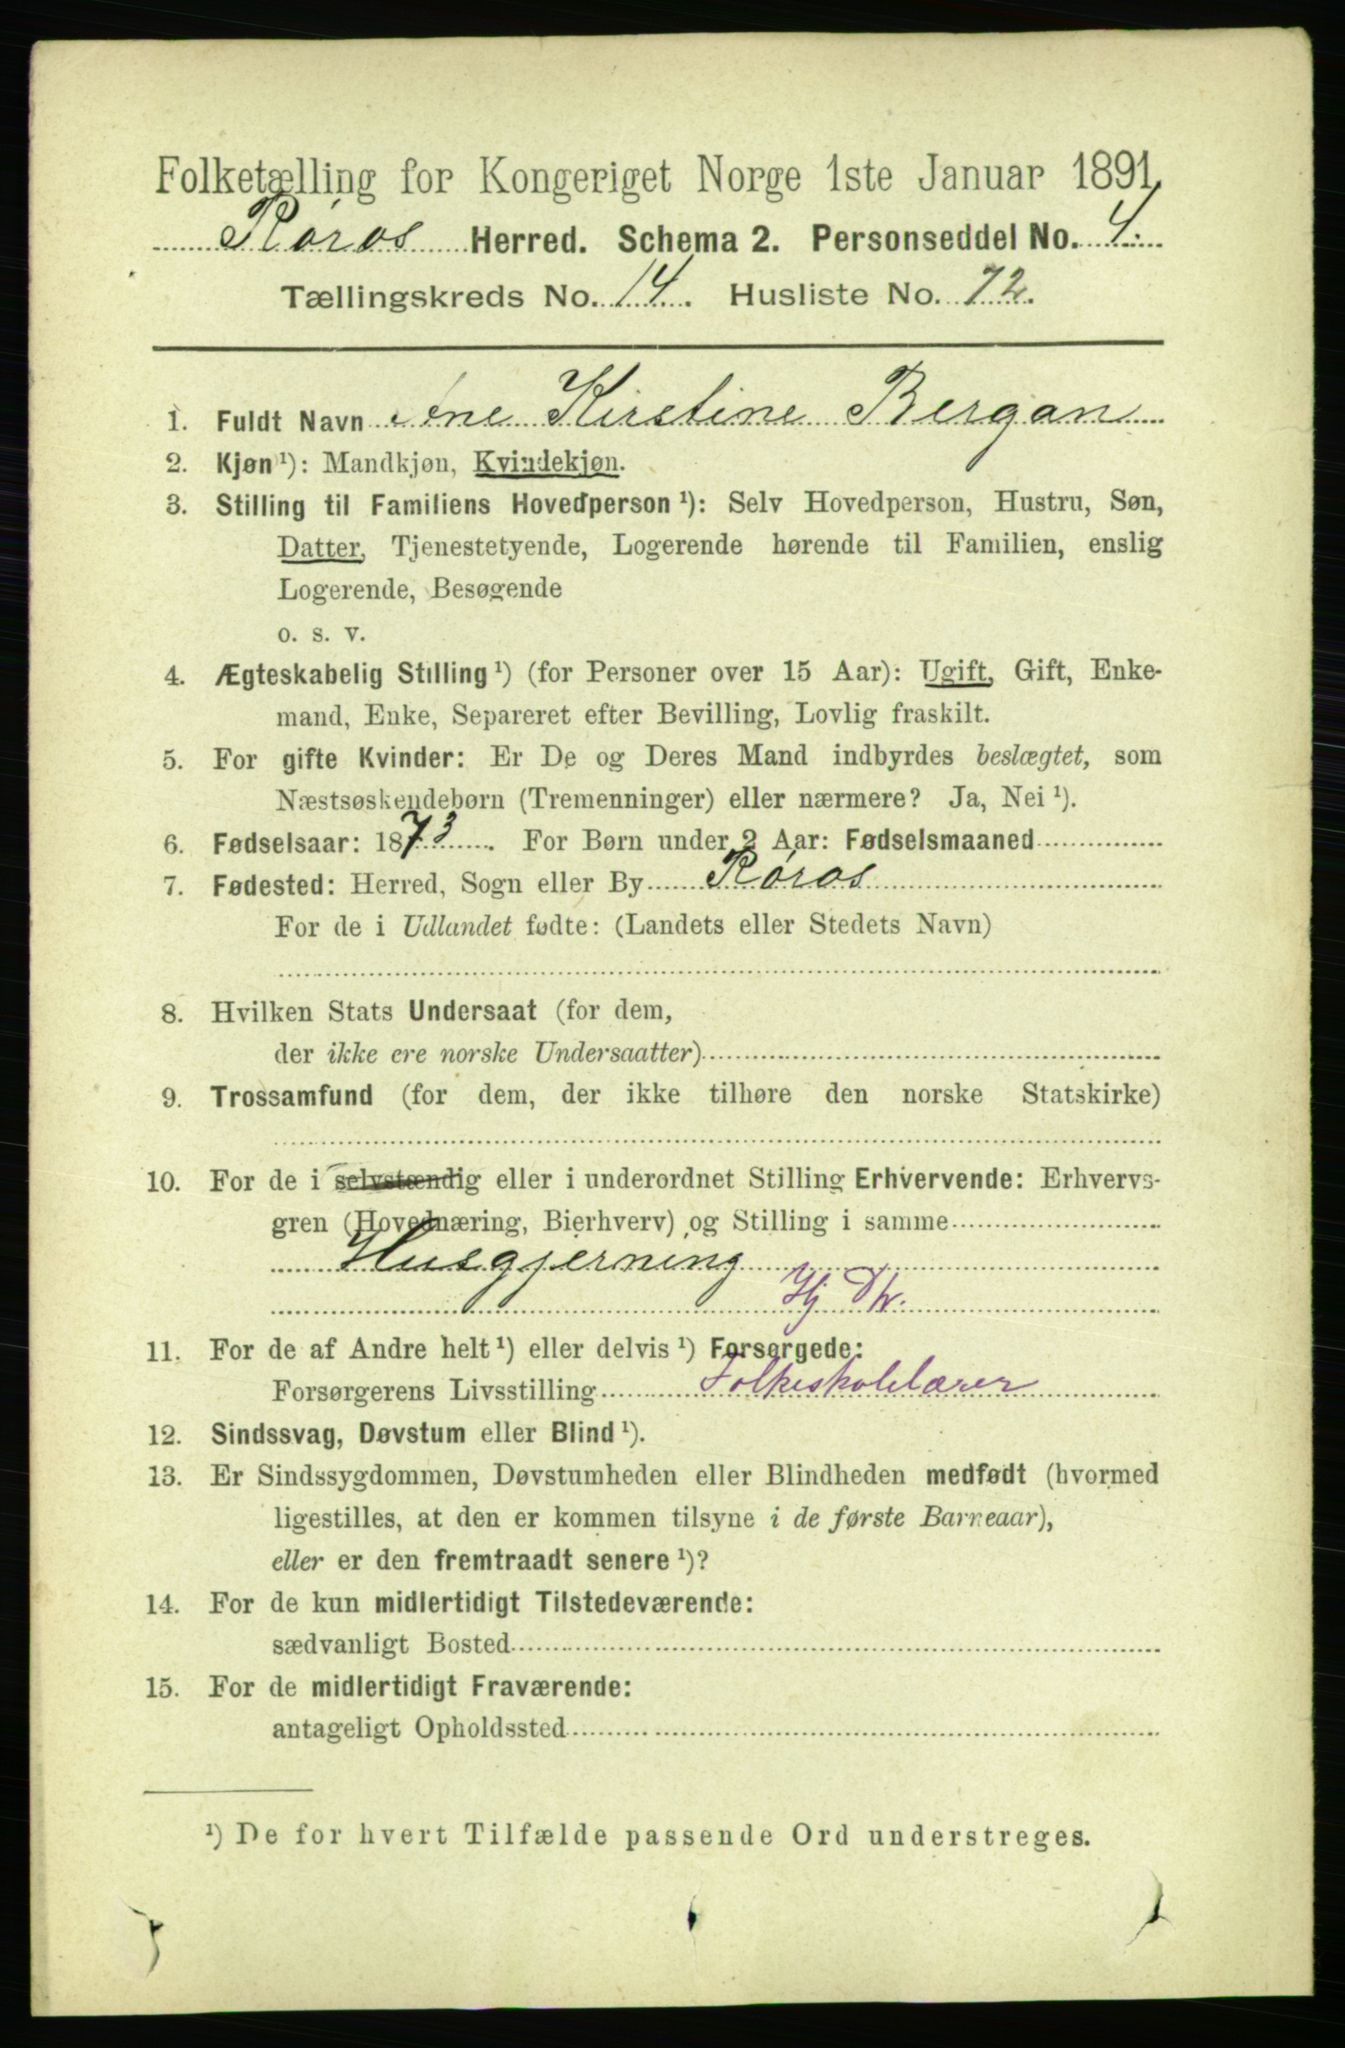 Folketælling for Kongeriget Norge 1ste Januar 1891.
Røros Herred. Schema 2. Personseddel No. 4.
Tællingskreds No. 14. Husliste No. 72.
1. Fuldt Navn Ane Kirstine Bergan
2. Kjøn ¹): Mandkjøn, Kvindekjøn.
3. Stilling til Familiens Hovedperson ¹): Selv Hovedperson, Hustru, Søn,
Datter, Tjenestetyende, Logerende hørende til Familien, enslig
Logerende, Besøgende
o. s. v.
4. Ægteskabelig Stilling ¹) (for Personer over 15 Aar): Ugift, Gift, Enke-
mand, Enke, Separeret efter Bevilling, Lovlig fraskilt.
5. For gifte Kvinder: Er De og Deres Mand indbyrdes beslægtet, som
Næstsøskendebørn (Tremenninger) eller nærmere? Ja, Nei ¹).
6. Fødselsaar: 1873. For Børn under 2 Aar: Fødselsmaaned
7. Fødested: Herred, Sogn eller By Røros
For de i Udlandet fødte: (Landets eller Stedets Navn)
8. Hvilken Stats Undersaat (for dem,
der ikke ere norske Undersaatter)
9. Trossamfund (for dem, der ikke tilhøre den norske Statskirke)
10. For de i selvstændig eller i underordnet Stilling Erhvervende: Erhvervs-
gren (Hovednæring, Bierhverv) og Stilling i samme
Husgjerning
Hj
11. For de af Andre helt ¹) eller delvis ¹) Forsørgede:
Forsørgerens Livsstilling Folkeskolelærer
12. Sindssvag, Døvstum eller Blind ¹).
13. Er Sindssygdommen, Døvstumheden eller Blindheden medfødt (hvormed
ligestilles, at den er kommen tilsyne i de første Barneaar),
eller er den fremtraadt senere ¹)?
14. For de kun midlertidigt Tilstedeværende:
sædvanligt Bosted
15. For de midlertidigt Fraværende:
antageligt Opholdssted
¹) De for hvert Tilfælde passende Ord understreges.